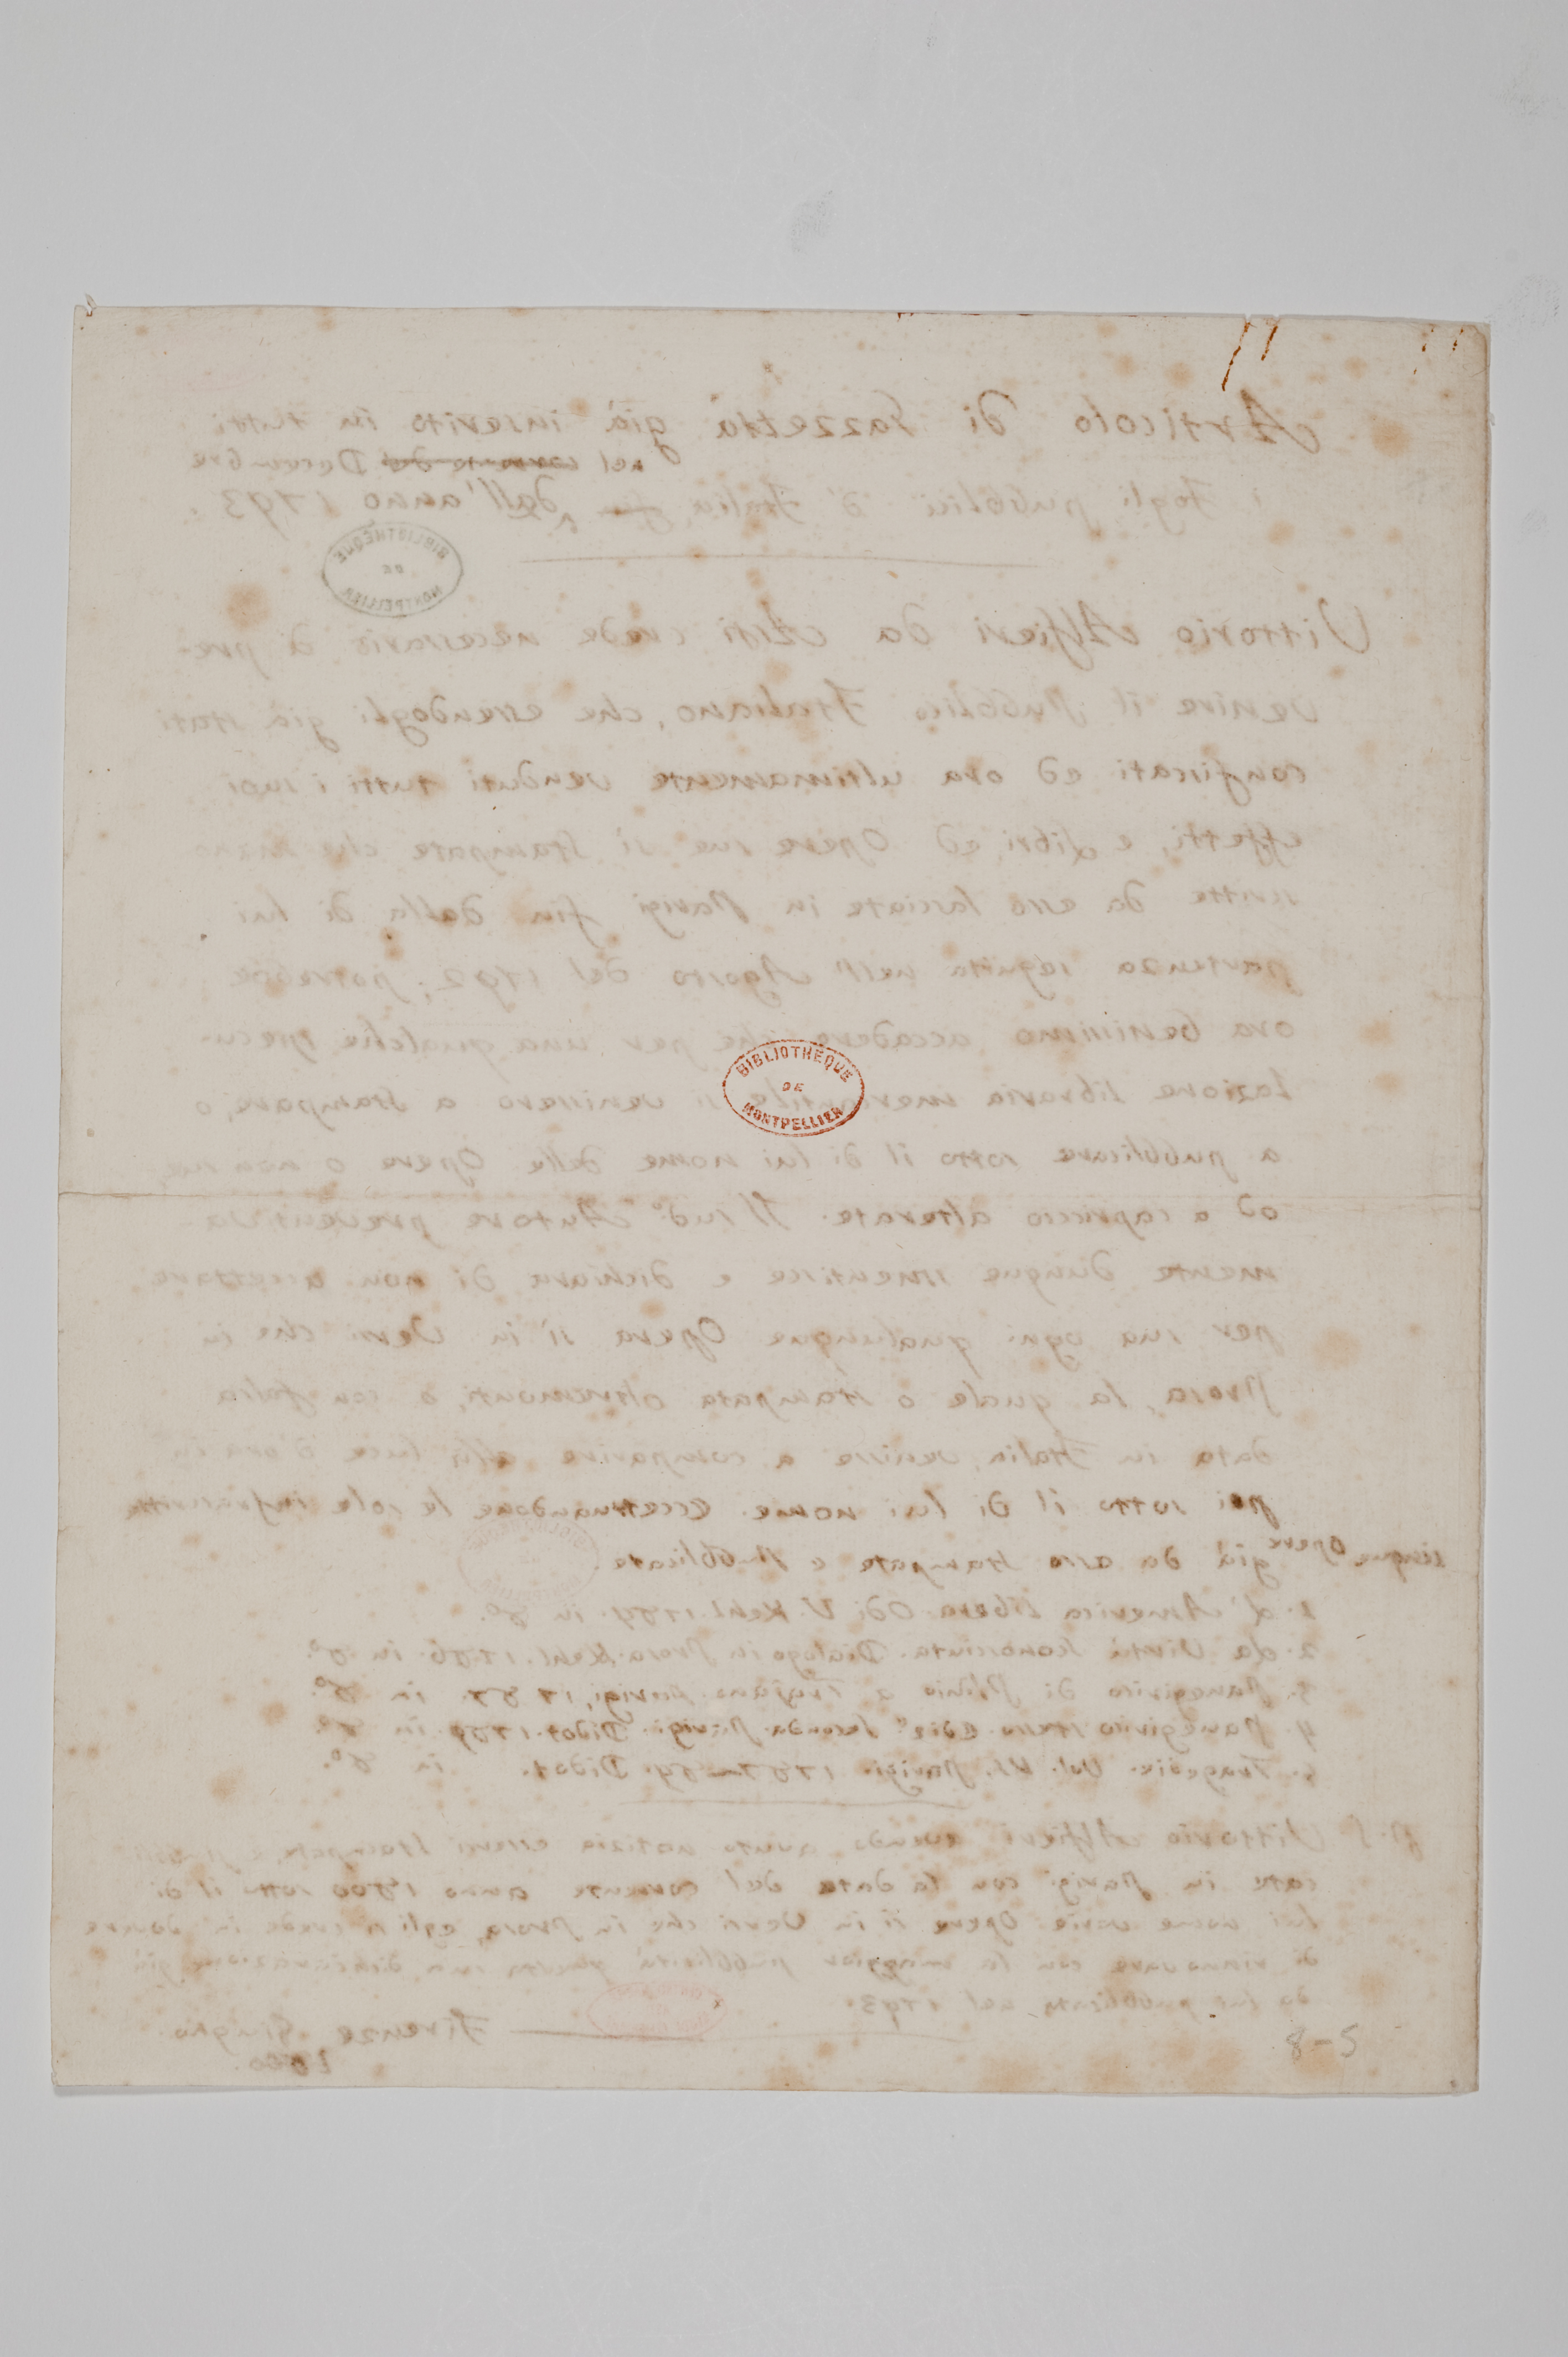 Articolo di Gazzetta già inserito in tutti
nel corrente del Decembre
i Fogli pubblici d'Italia dall'anno 1793.
BIBLIOTHÈQUE
DE
MONTPELLIER
Vittorio Alfieri da Asti crede necessario di pre-
venire il Pubblico Italiano, che essendogli già stati
confiscati ed ora ultimamente venduti tutti i suoi
effetti, e Libri, ed Opere sue sì stampate che
scritte da esso lasciate in Parigi fin dalla di lui
partenza seguita nell'Agosto del 1792; potrebbe
ora benissimo accadere che per una qualche specu-
lazione libraria mercantile si venissero a stampare, o
a pubblicare sotto il di lui nome delle Opere o non sue,
od a capriccio alterate. Il sud.º Autore preventiva-
mente dunque smentisce e dichiara di non accettare
per sua ogni qualunque Opera sì in Versi che in
Prosa, la quale o stampata oltremonti, o con falsa
data in Italia, venisse a comparire alla luce d'ora in
poi sotto il di lui nome. Eccettuandone le sole infrascritte
cinque Opere già da esso stampate e pubblicate.
1. L'America Libera. Odi V. Kehl. 1784. in 8º.
2. La Virtù sconosciuta. Dialogo in Prosa. Kehl. 1786. in 8º.
3. Panegirico di Plinio a Trajano. Parigi, 1787. in 8º.
4. Panegirico stesso. Ediz.e seconda. Parigi. Didot. 1789 in 8º.
5. Tragedie. Vol. VI. Parigi. 1787-89. Didot. in 8º.
P.S. Vittorio Alfieri avendo avuto notizia essersi stampate, e pubbli-
cate in Parigi con la data del corrente anno 1800 sotto il di
lui nome varie Opere sì in Versi che in Prosa, egli si crede in dovere
di rinnovare con la maggior pubblicità questa sua dichiarazione già
da lui pubblicata nel 1793.
Firenze Giugno
1800.
8-5